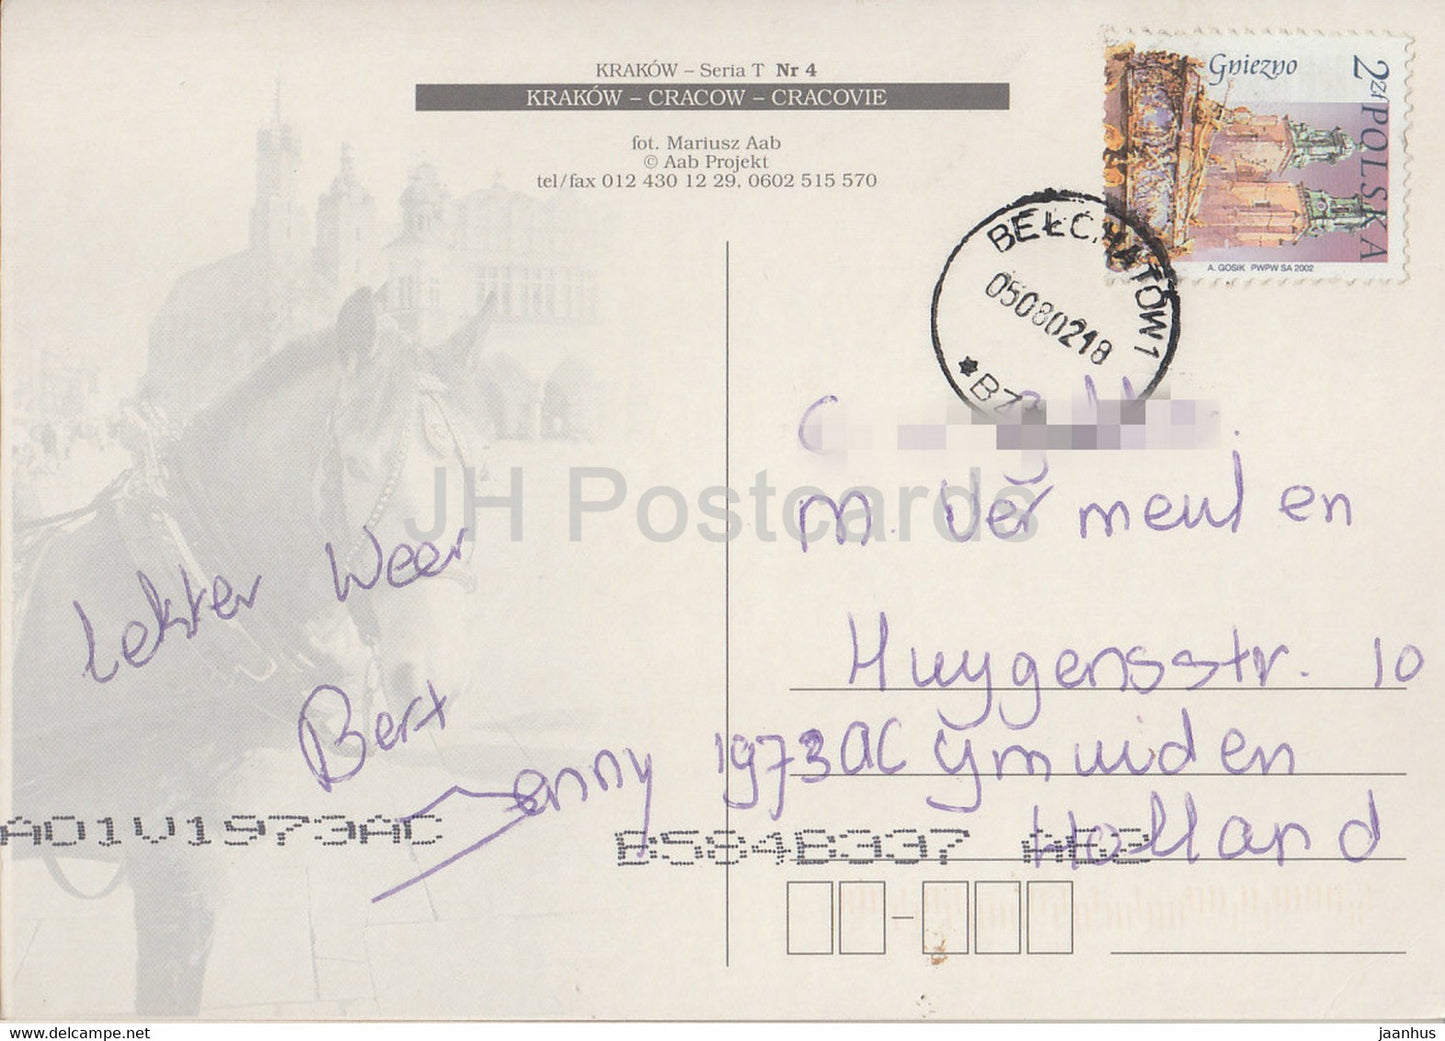 KRAKÓW – Seria T Nr 4
KRAKÓW – CRACOW – CRACOVIE
fot. Mariusz Aab
© Aab Projekt
tel/fax 012 430 12 29, 0602 515 570
Gniezno
2 zł POLSKA
A. GOSIK PWPW SA 2002
BEŁCHATÓW 1
05080218
JH Postcards
M. Vermeulen
Lekker Weer
Huygensstr. 10
Bert
Jenny
1973 AC IJmuiden
Holland
A01V1973AC
B584B337
www.delcampe.net
jaanhus